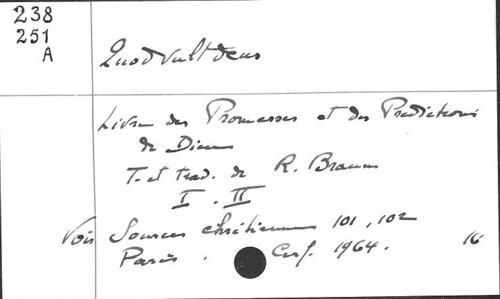 238
251
A
Quodvultdeus
Livre des Promesses et des Prédictions
de Dieu
T. et trad. de R. Braun
I. II
Voir Sources chrétiennes 101, 102
Paris. Cerf. 1964. 16